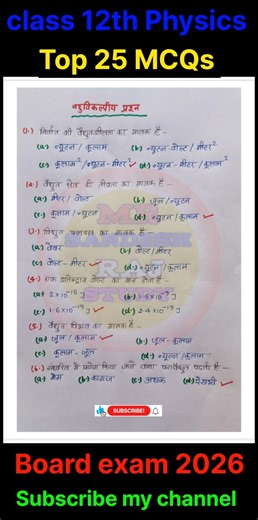 class 12th Physics
Top 25 MCQs
बहुविकल्पीय प्रश्न
(1.) निर्वात की वैद्युतशीलता का मात्रक है -
(a) न्यूटन / कूलाम (b) न्यूटन-वोल्ट / मीटर²
(c) कूलाम² / न्यूटन-मीटर² ✓ (d) न्यूटन-मीटर² / कूलाम²
(2.) वैद्युत क्षेत्र की तीव्रता का मात्रक है -
(a) मीटर / वोल्ट (b) जूल / न्यूटन
(c) कूलाम / न्यूटन (d) न्यूटन / कूलाम ✓
(3.) विद्युत फ्लक्स का मात्रक है -
(a) वेबर (b) वोल्ट / मीटर
(c) वोल्ट - मीटर ✓ (d) न्यूटन / कूलाम
(4.) एक इलेक्ट्रान वोल्ट का मान होता है -
(a) 2×10⁻¹⁹ J (b) 1.5×10⁻¹⁹ J
(c) 1.6×10⁻¹⁹ J ✓ (d) 2.4×10⁻¹⁹ J
(5.) वैद्युत विभव का मात्रक है -
(a) जूल / कूलाम ✓ (b) जूल - कूलाम
(c) कूलाम - जूल (d) न्यूटन / कूलाम
(6.) संधारित्र में प्रयोग किया जाने वाला परावैद्युत पदार्थ है -
(a) मोम (b) कागज (c) अभ्रक (d) ये सभी ✓
SUBSCRIBE!
Board exam 2026
Subscribe my channel